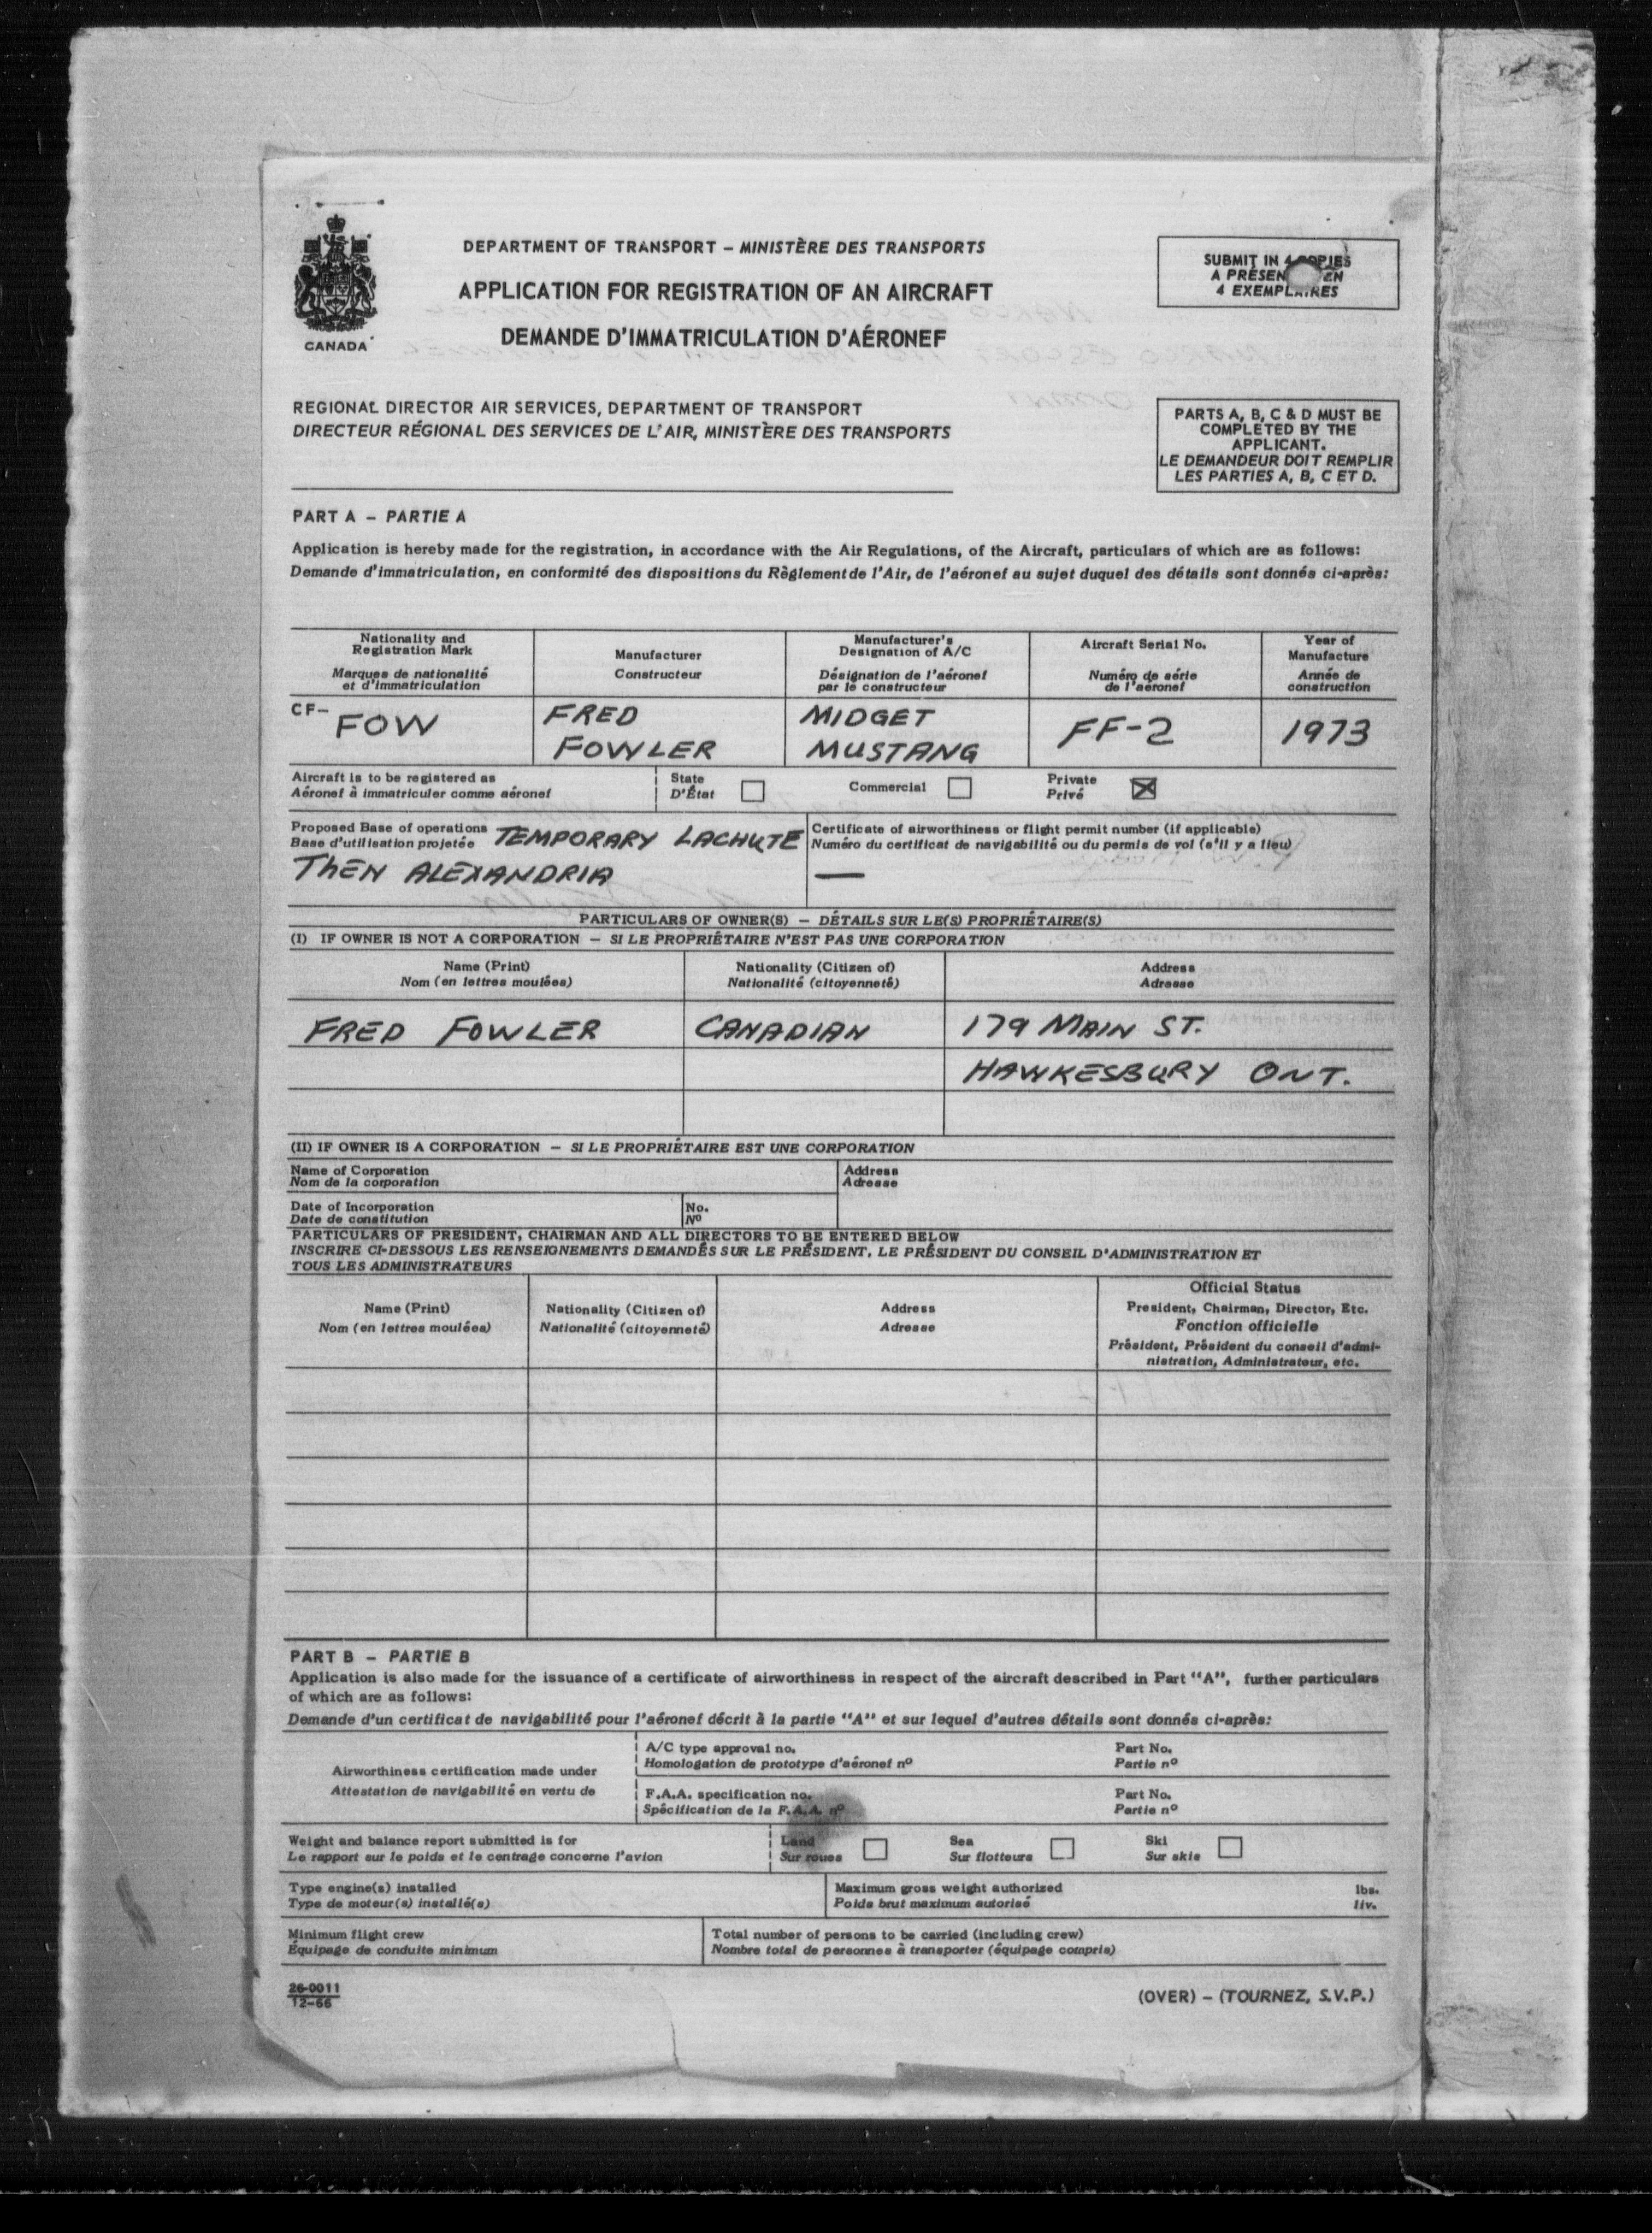 CANADA
DEPARTMENT OF TRANSPORT – MINISTÈRE DES TRANSPORTS
APPLICATION FOR REGISTRATION OF AN AIRCRAFT
DEMANDE D'IMMATRICULATION D'AÉRONEF
SUBMIT IN 4 COPIES
A PRÉSEN EN
4 EXEMPLAIRES
REGIONAL DIRECTOR AIR SERVICES, DEPARTMENT OF TRANSPORT
DIRECTEUR RÉGIONAL DES SERVICES DE L'AIR, MINISTÈRE DES TRANSPORTS
PARTS A, B, C & D MUST BE
COMPLETED BY THE
APPLICANT.
LE DEMANDEUR DOIT REMPLIR
LES PARTIES A, B, C ET D.
PART A – PARTIE A
Application is hereby made for the registration, in accordance with the Air Regulations, of the Aircraft, particulars of which are as follows:
Demande d'immatriculation, en conformité des dispositions du Règlement de l'Air, de l'aéronef au sujet duquel des détails sont donnés ci-après:
Nationality and
Registration Mark
Marques de nationalité
et d'immatriculation
Manufacturer
Constructeur
Manufacturer's
Designation of A/C
Désignation de l'aéronef
par le constructeur
Aircraft Serial No.
Numéro de série
de l'aéronef
Year of
Manufacture
Année de
construction
CF- FOW
FRED
FOWLER
MIDGET
MUSTANG
FF-2
1973
Aircraft is to be registered as
Aéronef à immatriculer comme aéronef
State
D'État
Commercial
Private
Privé
Proposed Base of operations
Base d'utilisation projetée
TEMPORARY LACHUTE
THEN ALEXANDRIA
Certificate of airworthiness or flight permit number (if applicable)
Numéro du certificat de navigabilité ou du permis de vol (s'il y a lieu)
—
PARTICULARS OF OWNER(S) – DÉTAILS SUR LE(S) PROPRIÉTAIRE(S)
(I) IF OWNER IS NOT A CORPORATION – SI LE PROPRIÉTAIRE N'EST PAS UNE CORPORATION
Name (Print)
Nom (en lettres moulées)
Nationality (Citizen of)
Nationalité (citoyenneté)
Address
Adresse
FRED FOWLER
CANADIAN
179 MAIN ST.
HAWKESBURY ONT.
(II) IF OWNER IS A CORPORATION – SI LE PROPRIÉTAIRE EST UNE CORPORATION
Name of Corporation
Nom de la corporation
Address
Adresse
Date of Incorporation
Date de constitution
No.
Nº
PARTICULARS OF PRESIDENT, CHAIRMAN AND ALL DIRECTORS TO BE ENTERED BELOW
INSCRIRE CI-DESSOUS LES RENSEIGNEMENTS DEMANDÉS SUR LE PRÉSIDENT, LE PRÉSIDENT DU CONSEIL D'ADMINISTRATION ET
TOUS LES ADMINISTRATEURS
Name (Print)
Nom (en lettres moulées)
Nationality (Citizen of)
Nationalité (citoyenneté)
Address
Adresse
Official Status
President, Chairman, Director, Etc.
Fonction officielle
Président, Président du conseil d'admi-
nistration, Administrateur, etc.
PART B – PARTIE B
Application is also made for the issuance of a certificate of airworthiness in respect of the aircraft described in Part "A", further particulars
of which are as follows:
Demande d'un certificat de navigabilité pour l'aéronef décrit à la partie "A" et sur lequel d'autres détails sont donnés ci-après:
Airworthiness certification made under
Attestation de navigabilité en vertu de
A/C type approval no.
Homologation de prototype d'aéronef nº
Part No.
Partie nº
F.A.A. specification no.
Spécification de la F.A.A. nº
Part No.
Partie nº
Weight and balance report submitted is for
Le rapport sur le poids et le centrage concerne l'avion
Land
Sur roues
Sea
Sur flotteurs
Ski
Sur skis
Type engine(s) installed
Type de moteur(s) installé(s)
Maximum gross weight authorized
Poids brut maximum autorisé
lbs.
liv.
Minimum flight crew
Équipage de conduite minimum
Total number of persons to be carried (including crew)
Nombre total de personnes à transporter (équipage compris)
26-0011
12-66
(OVER) – (TOURNEZ, S.V.P.)